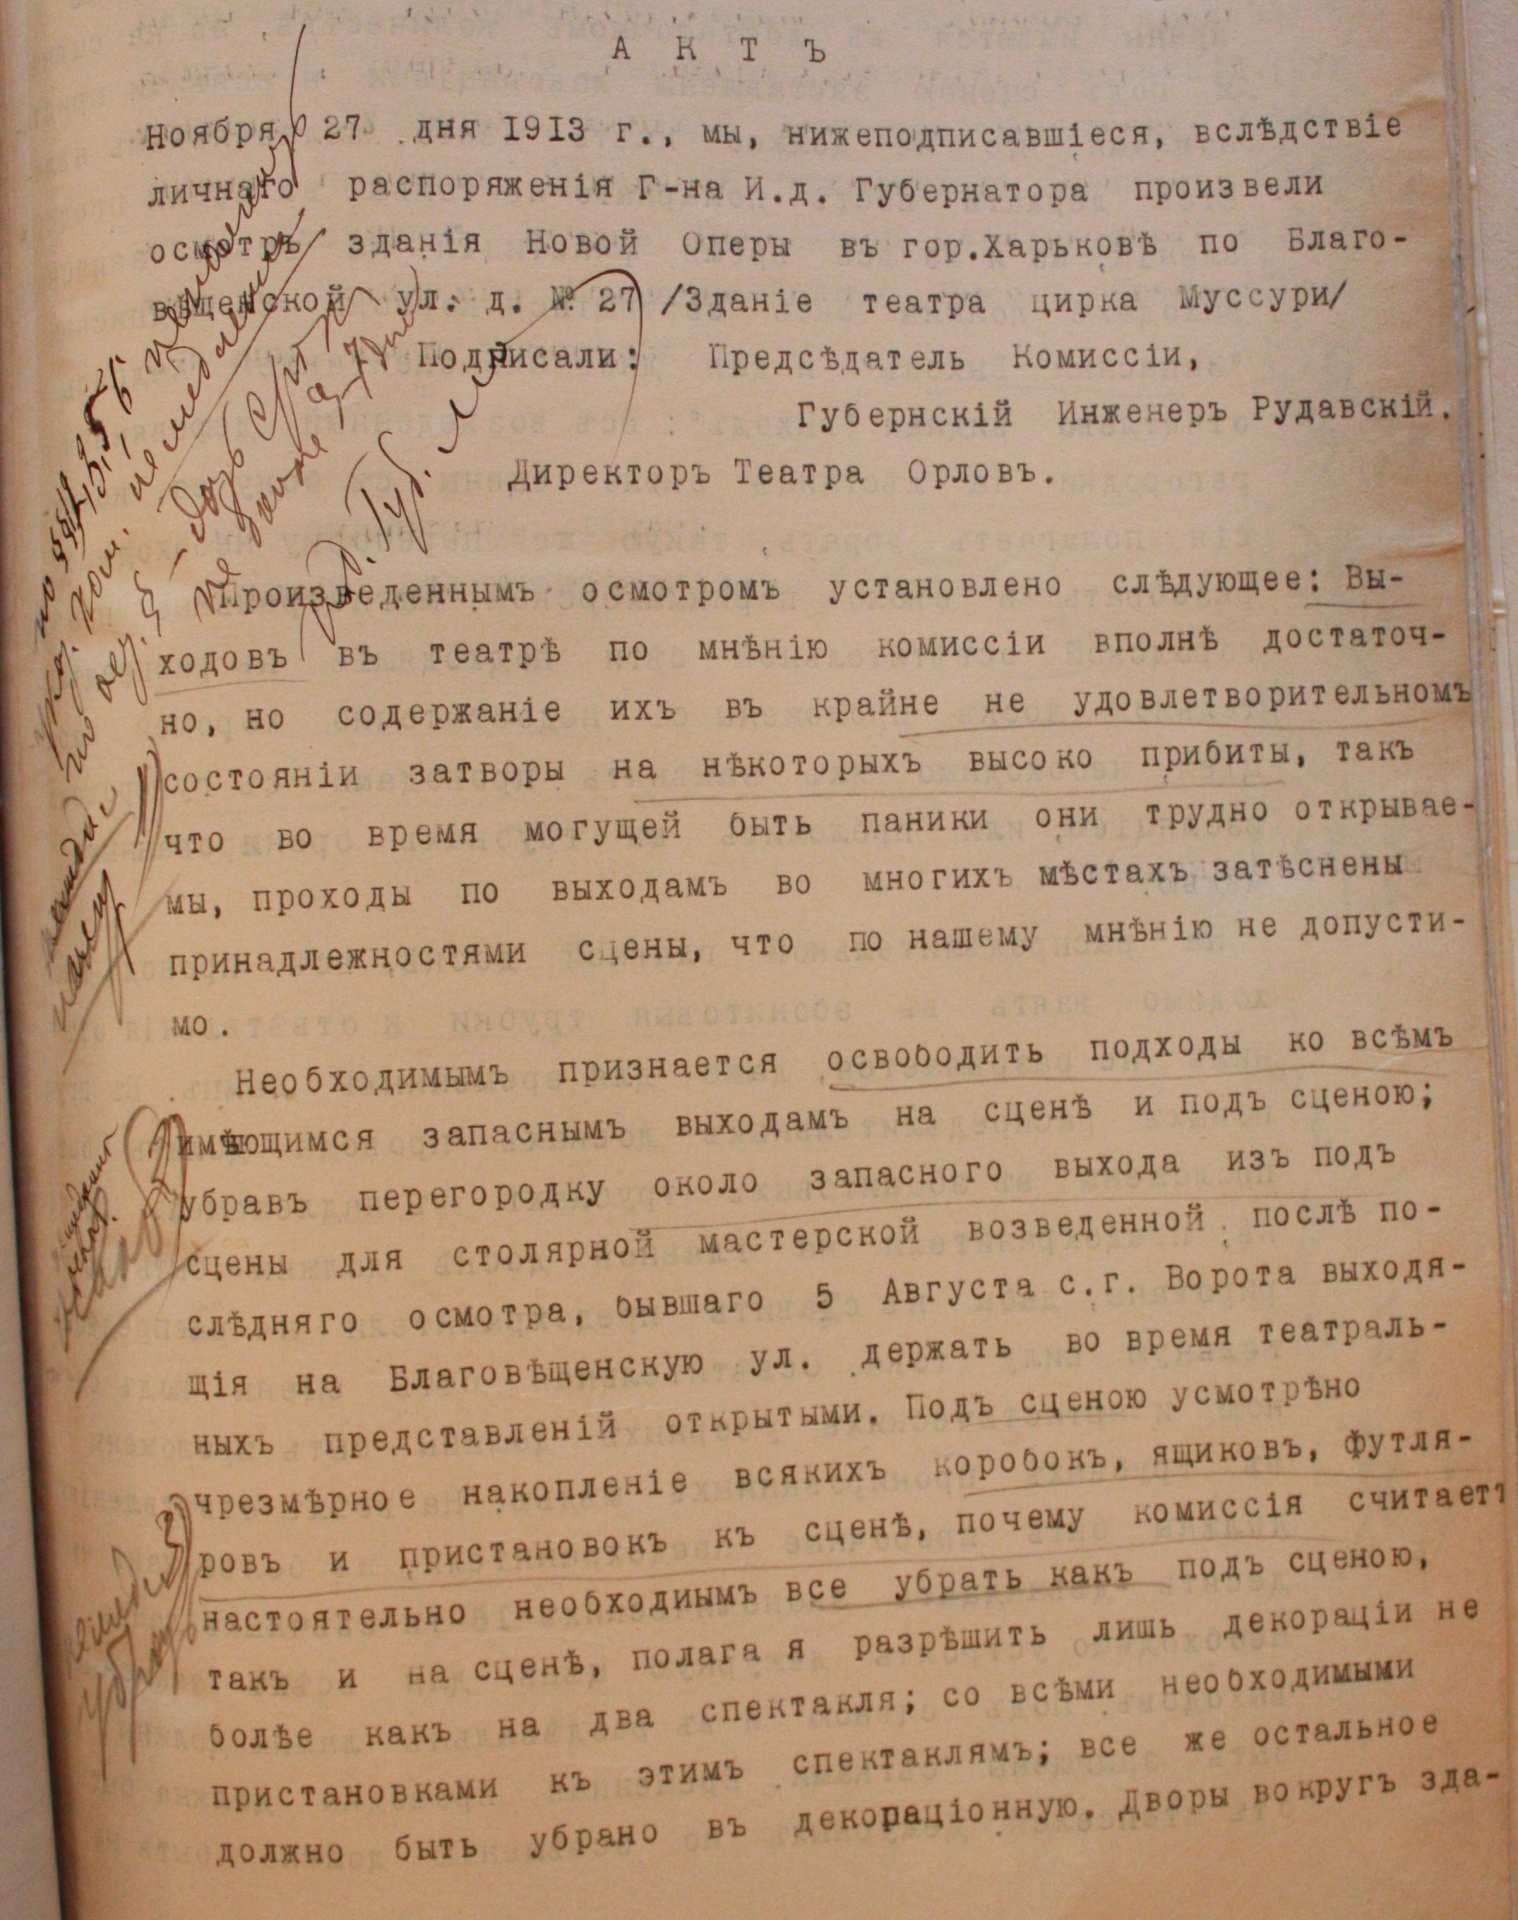 АКТЪ
Ноября 27 дня 1913 г., мы, нижеподписавшіеся, вслѣдствіе
личнаго распоряженія Г-на И.д. Губернатора произвели
осмотръ зданія Новой Оперы въ гор.Харьковѣ по Благо-
вѣщенской ул. д. № 27 /Зданіе театра цирка Муссури/
Подписали: Предсѣдатель Комиссіи,
Губернскій Инженеръ Рудавскій.
Директоръ Театра Орловъ.
Произведеннымъ осмотромъ установлено слѣдующее: Вы-
ходовъ въ театрѣ по мнѣнію комиссіи вполнѣ достаточ-
но, но содержаніе ихъ въ крайне не удовлетворительномъ
состояніи затворы на нѣкоторыхъ высоко прибиты, такъ
что во время могущей быть паники они трудно открывае-
мы, проходы по выходамъ во многихъ мѣстахъ затѣснены
принадлежностями сцены, что по нашему мнѣнію не допусти-
мо.
Необходимымъ признается освободить подходы ко всѣмъ
имѣющимся запаснымъ выходамъ на сценѣ и подъ сценою;
убравъ перегородку около запасного выхода изъ подъ
сцены для столярной мастерской возведенной послѣ по-
слѣдняго осмотра, бывшаго 5 Августа с.г. Ворота выходя-
щія на Благовѣщенскую ул. держать во время театраль-
ныхъ представленій открытыми. Подъ сценою усмотрѣно
чрезмѣрное накопленіе всякихъ коробокъ, ящиковъ, футля-
ровъ и пристановокъ къ сценѣ, почему комиссія считаетъ
настоятельно необходиымъ все убрать какъ подъ сценою,
такъ и на сценѣ, полага я разрѣшить лишь декораціи не
болѣе какъ на два спектакля; со всѣми необходимыми
пристановками къ этимъ спектаклямъ; все же остальное
должно быть убрано въ декораціонную. Дворы вокругъ зда-